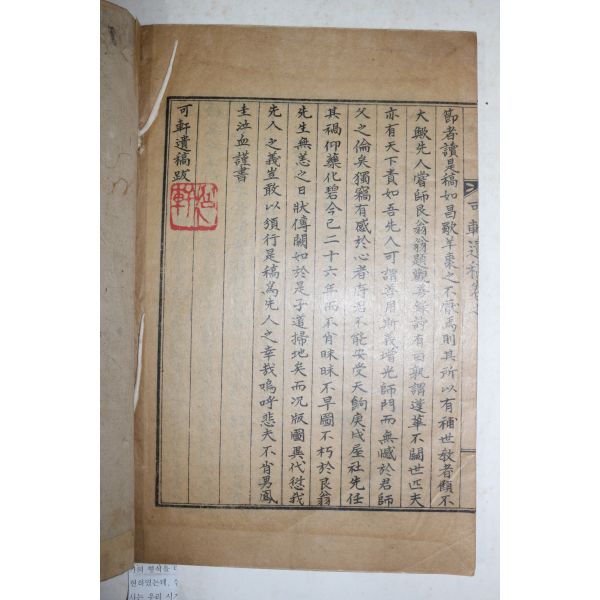 節者讀是稿如昌歜羊棗之不厭焉則其所以有補世敎者顧不
大歟先人嘗師艮翁翁題觀善錄詩有曰孰謂蓬華不關世匹夫
亦有天下責如吾先人可謂善用斯義增光師門而無憾於君師
父之倫矣獨竊有感於心者寺忍不能安受天餉庚戌屋社先任
其禍仰藥化碧今已二十六年而不肖昧昧不早圖不朽於艮翁
先生無恙之日狀傳闕如於是子道掃地矣而况版圖異代愆我
先人之義豈敢以須行是稿爲先人之幸哉嗚呼悲夫不肖男鳳
圭泣血謹書
可軒遺稿跋
可軒遺稿卷